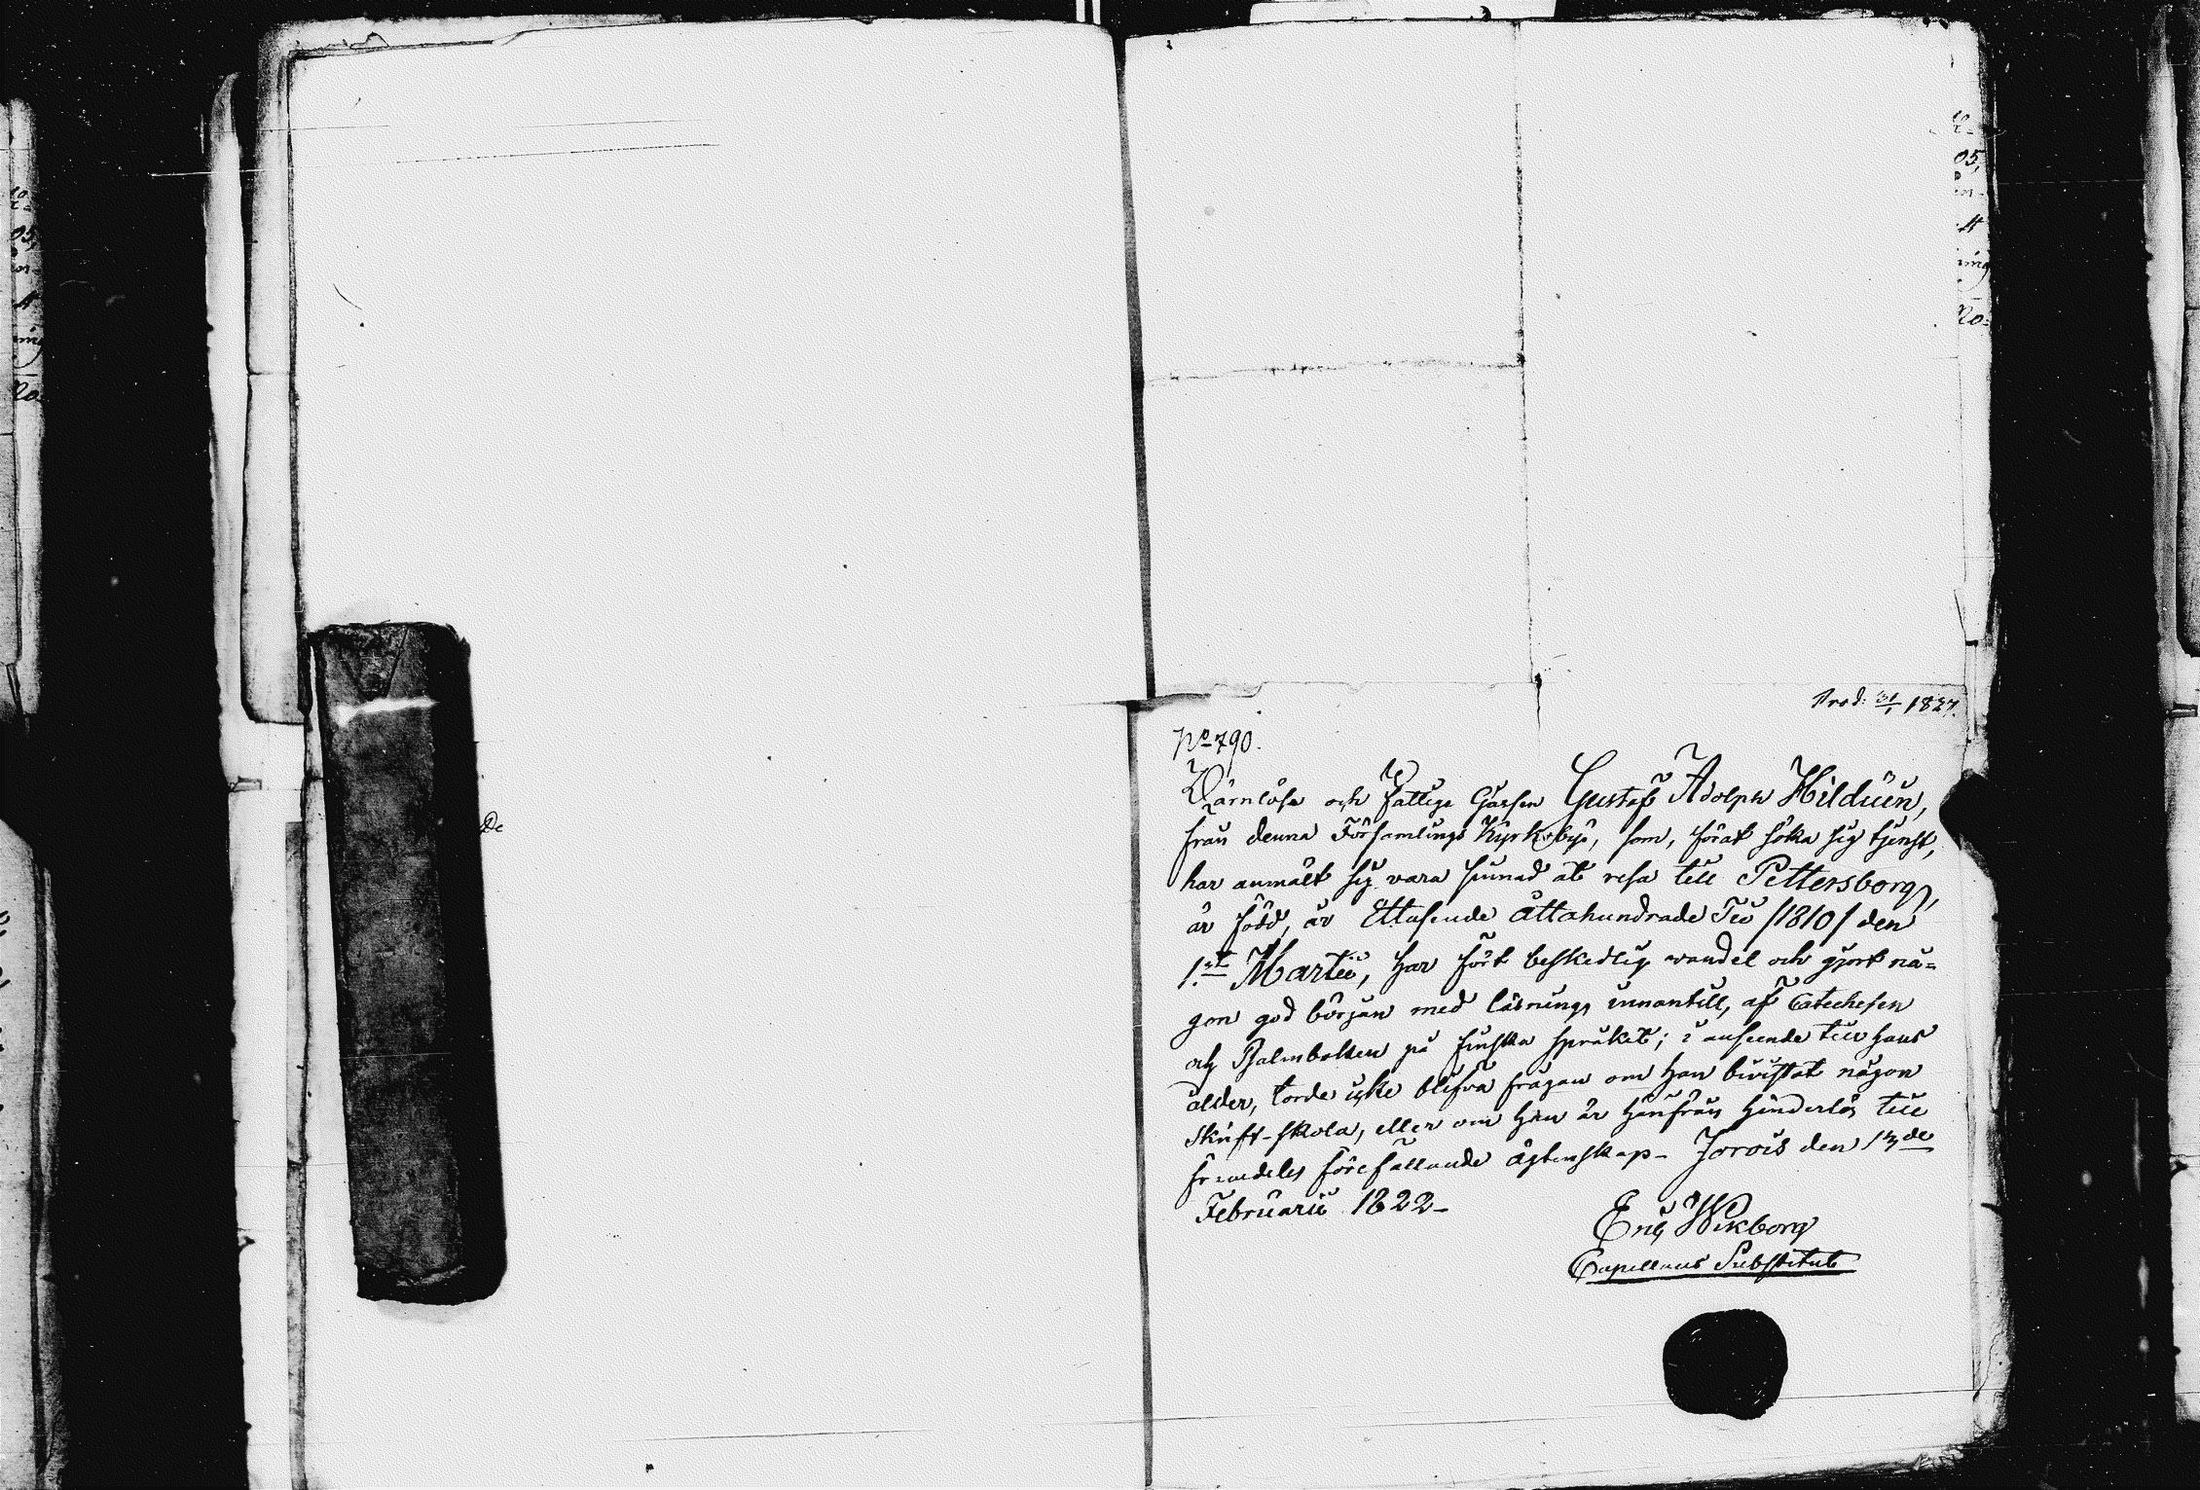 Prod: 31/1 1827.
No 790.
Wärnlöse och Fattige Gossen Gustaf Adolph Hildéen,
från denna Församlings Kyrkoby, som, förat söka sig tjenst,
har anmält sig vara sinnad at resa till Pettersborg,
är född, år Ettusende åttahundrade Tio /1810/ den
1.st Martii, har fört beskedlig wandel och gjort nå=
gon god början med läsning innantill, af Catechesen
och Psalmboken på finska språket; i anseende till hans
ålder, torde icke blifva frågan om han bivistat någon
Skrift-skola, eller om han är härifrån hinderlös till
fremdeles förefallande ägtenskap. Jorois den 13de
Februarii 1822-
Eric Wikborg
Capellans Substitut
De
05,
ing
Ro=